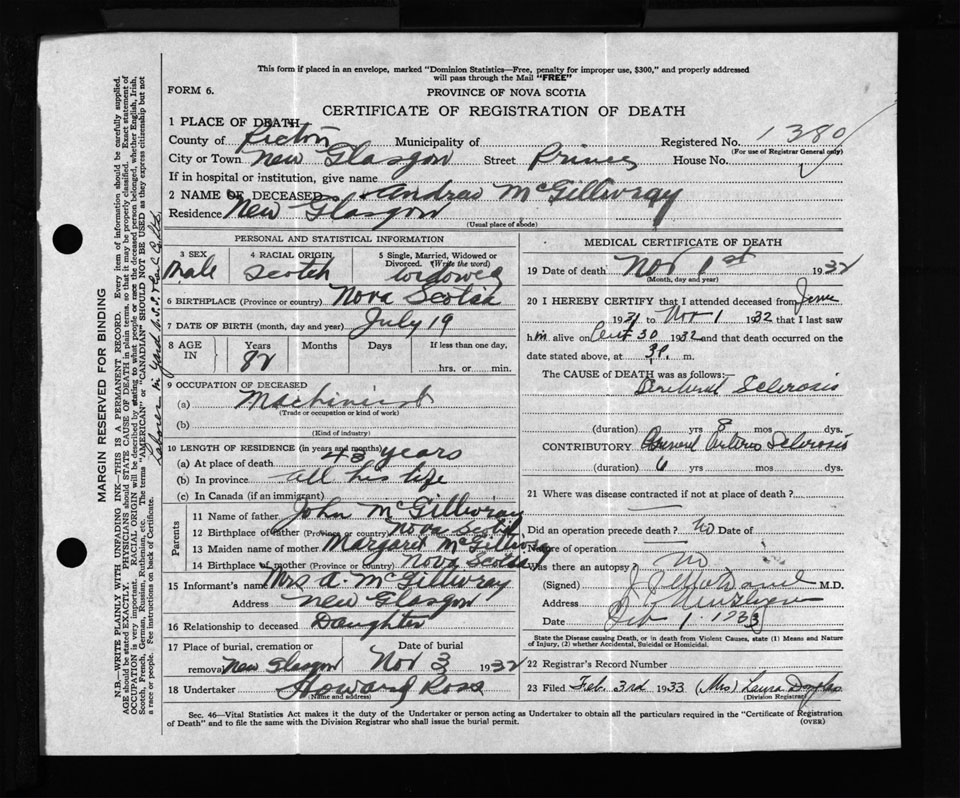 This form if placed in an envelope, marked "Dominion Statistics—Free, penalty for improper use, $300," and properly addressed
will pass through the Mail "FREE"
FORM 6.
PROVINCE OF NOVA SCOTIA
CERTIFICATE OF REGISTRATION OF DEATH
1 PLACE OF DEATH
County of Pictou Municipality of Registered No. 1380
(For use of Registrar General only)
City or Town New Glasgow Street Prince House No.
If in hospital or institution, give name
2 NAME OF DECEASED Andrew McGillivray
Residence New Glasgow
(Usual place of abode)
PERSONAL AND STATISTICAL INFORMATION
3 SEX Male
4 RACIAL ORIGIN Scotch
5 Single, Married, Widowed or Divorced. (Write the word) widowed
6 BIRTHPLACE (Province or country) Nova Scotia
7 DATE OF BIRTH (month, day and year) July 19
8 AGE IN Years 82 Months Days If less than one day, hrs. or min.
9 OCCUPATION OF DECEASED
(a) Machinist
(Trade or occupation or kind of work)
(b)
(Kind of industry)
10 LENGTH OF RESIDENCE (in years and months)
(a) At place of death 45 years
(b) In province all his life
(c) In Canada (if an immigrant)
Parents
11 Name of father John McGillivray
12 Birthplace of father (Province or country) Nova Scotia
13 Maiden name of mother Margaret McGillivray
14 Birthplace of mother (Province or country) Nova Scotia
15 Informant's name Mrs A. McGillivray
Address New Glasgow
16 Relationship to deceased Daughter
17 Place of burial, cremation or removal New Glasgow Date of burial Nov 3 1932
18 Undertaker Howard Ross
(Name and address)
MEDICAL CERTIFICATE OF DEATH
19 Date of death Nov 1st 1932
(Month, day and year)
20 I HEREBY CERTIFY that I attended deceased from June
1931 to Nov 1 1932 that I last saw
him alive on 30 1932 and that death occurred on the
date stated above, at m.
The CAUSE of DEATH was as follows:—
Cerebral Sclerosis
(duration) 8 yrs mos dys.
CONTRIBUTORY General Arterio Sclerosis
(duration) 6 yrs mos dys.
21 Where was disease contracted if not at place of death?
Did an operation precede death? no Date of
Nature of operation
Was there an autopsy? no
(Signed) M.D.
Address
Date Feb 1. 1933
State the Disease causing Death, or in death from Violent Causes, state (1) Means and Nature
of Injury, (2) whether Accidental, Suicidal or Homicidal.
22 Registrar's Record Number
23 Filed Feb. 3rd 1933 (Mrs) Laura Douglas
(Division Registrar)
Sec. 46—Vital Statistics Act makes it the duty of the Undertaker or person acting as Undertaker to obtain all the particulars required in the "Certificate of Registration
of Death" and to file the same with the Division Registrar who shall issue the burial permit.
(OVER)
MARGIN RESERVED FOR BINDING
N.B.—WRITE PLAINLY WITH UNFADING INK—THIS IS A PERMANENT RECORD. Every item of information should be carefully supplied.
AGE should be stated EXACTLY. PHYSICIANS should STATE CAUSE OF DEATH in plain terms, so that it may be properly classified. Exact statement of
OCCUPATION is very important. RACIAL ORIGIN will be described by stating to what people or race the deceased person belonged, whether English, Irish,
Scotch, French, German, Russian, Ruthenian, etc. The terms "AMERICAN" or "CANADIAN" SHOULD NOT BE USED as they express citizenship but not
a race or people. Fee instructions on back of Certificate.
Laborer in yard